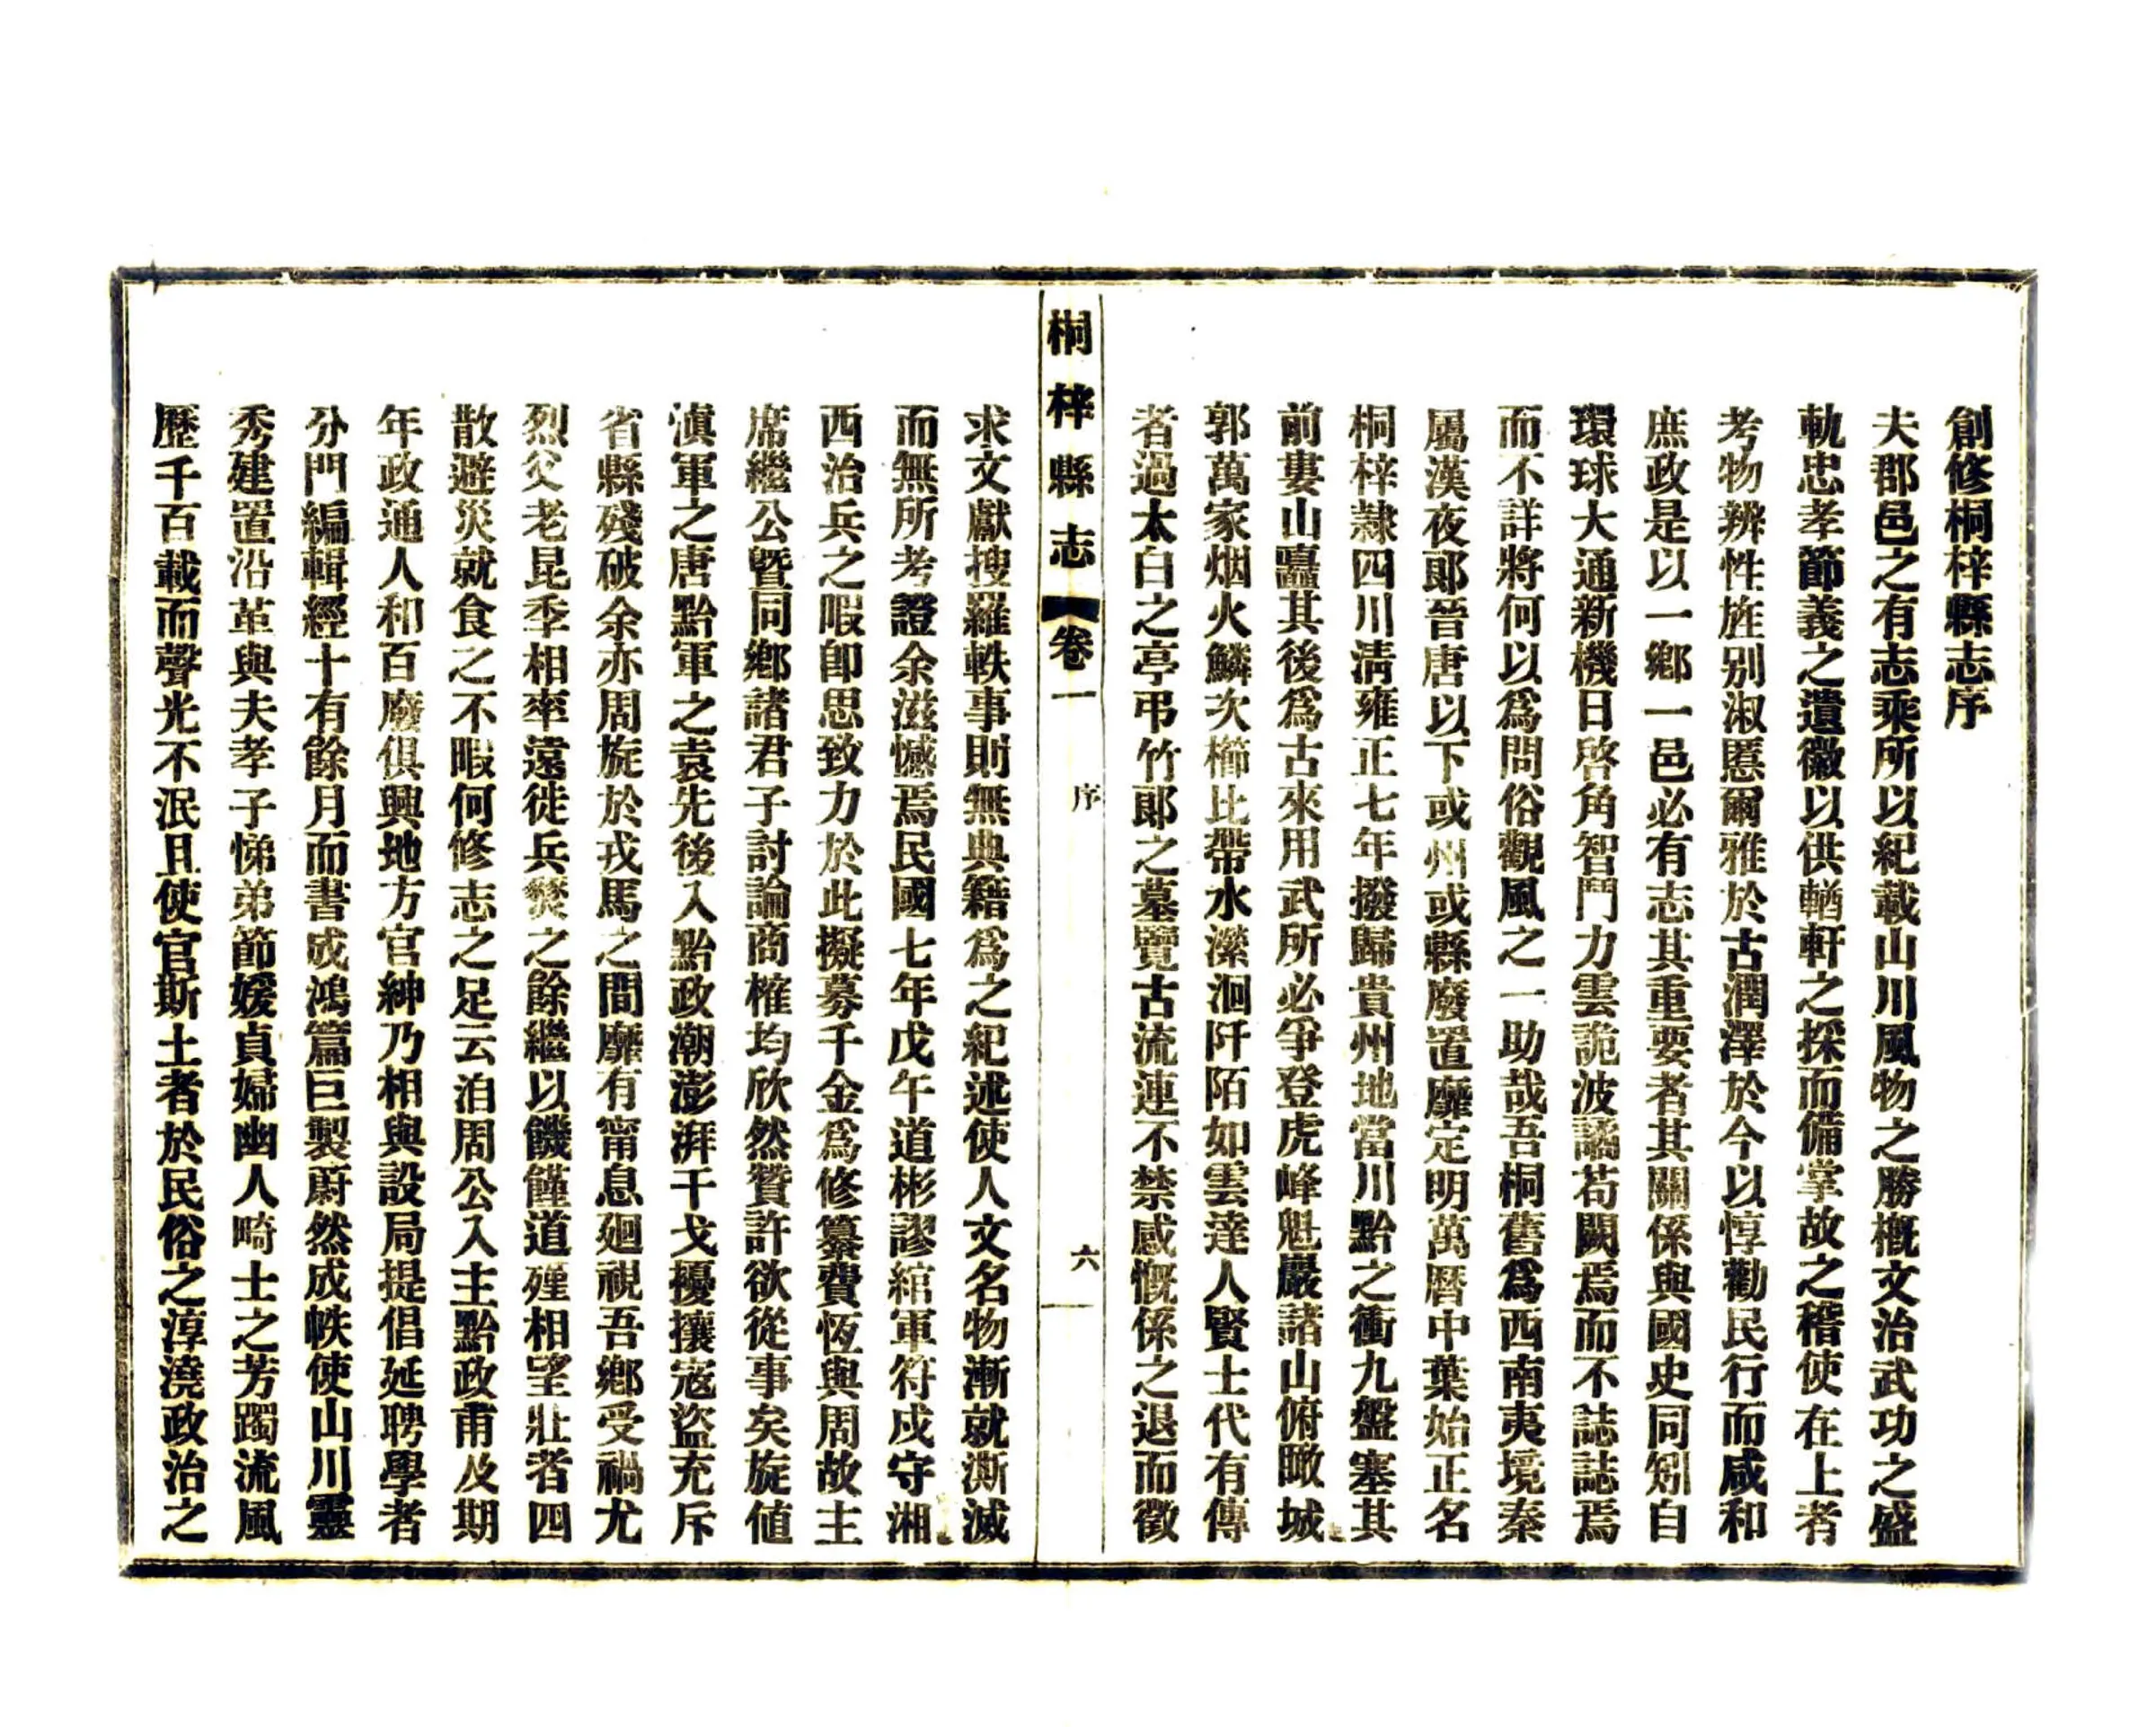 創修桐梓縣志序
夫郡邑之有志乘所以紀載山川風物之勝概文治武功之盛
軌忠孝節義之遺徽以供輶軒之採而備掌故之稽使在上者
考物辨性旌别淑慝爾雅於古潤澤於今以惇勸民行而咸和
庶政是以一鄉一邑必有志其重要者其關係與國史同矧自
環球大通新機日啓角智鬥力雲詭波譎苟闕焉而不誌誌焉
而不詳將何以爲問俗觀風之一助哉吾桐舊爲西南夷境秦
屬漢夜郎晉唐以下或州或縣廢置靡定明萬曆中葉始正名
桐梓隷四川淸雍正七年撥歸貴州地當川黔之衝九盤塞其
前婁山矗其後爲古來用武所必爭登虎峰魁巖諸山俯瞰城
郭萬家烟火鱗次櫛比帶水瀠洄阡陌如雲達人賢士代有傳
者過太白之亭弔竹郎之墓覽古流連不禁感慨係之退而徵
桐梓縣志 卷一 序 六
求文獻搜羅軼事則無典籍爲之紀述使人文名物漸就澌滅
而無所考證余滋憾焉民國七年戊午道彬謬綰軍符戍守湘
西治兵之暇卽思致力於此擬募千金爲修纂費恆與周故主
席繼公暨同鄉諸君子討論商榷均欣然贊許欲從事矣旋値
滇軍之唐黔軍之袁先後入黔政潮澎湃干戈擾攘寇盜充斥
省縣殘破余亦周旋於戎馬之間靡有甯息廻視吾鄉受禍尤
烈父老昆季相率遠徙兵燹之餘繼以饑饉道殣相望壯者四
散避災就食之不暇何修志之足云洎周公入主黔政甫及期
年政通人和百廢俱興地方官紳乃相與設局提倡延聘學者
分門編輯經十有餘月而書成鴻篇巨製蔚然成帙使山川靈
秀建置沿革與夫孝子悌弟節媛貞婦幽人畸士之芳躅流風
歷千百載而聲光不泯且使官斯土者於民俗之淳澆政治之